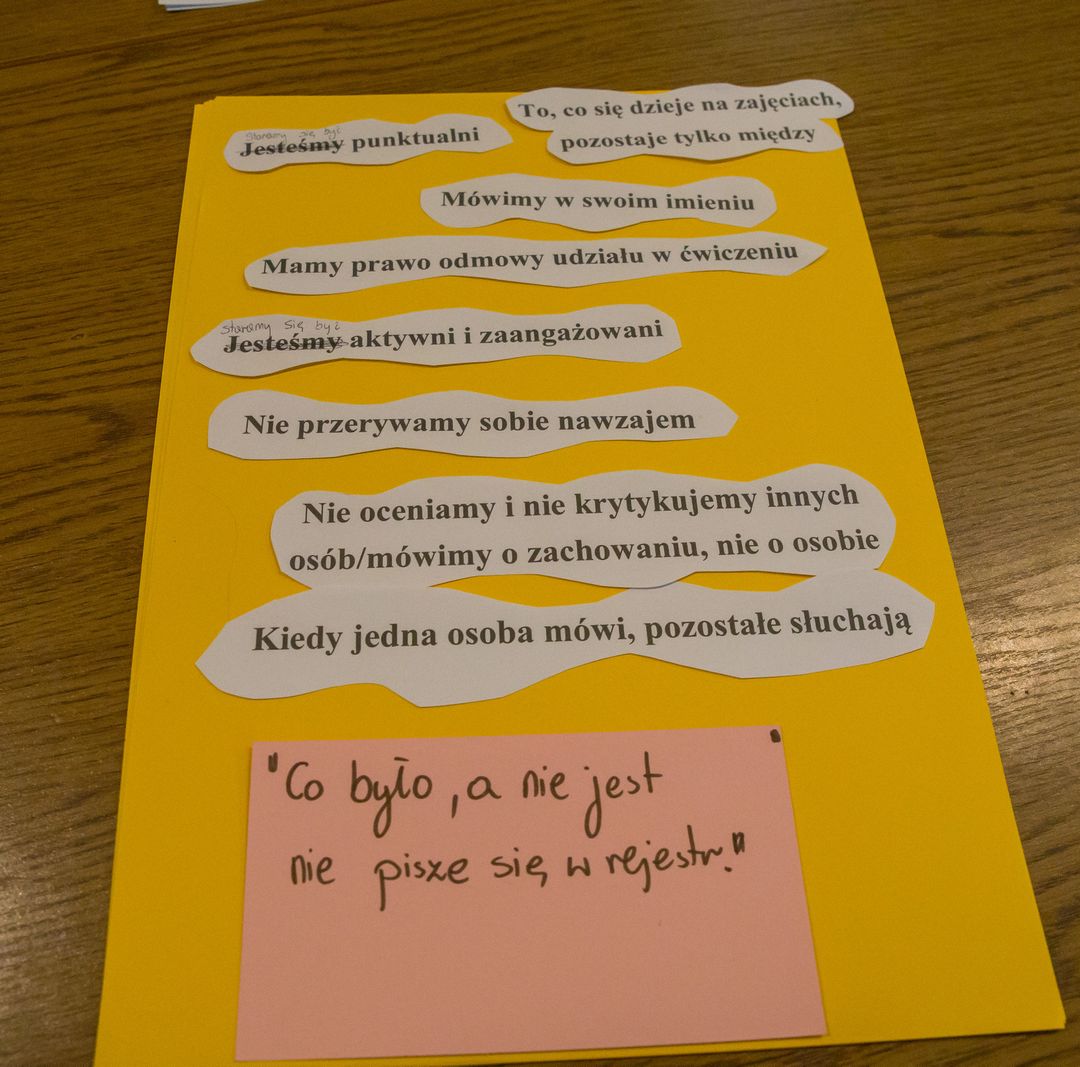 To, co się dzieje na zajęciach,
pozostaje tylko między
staramy się być
Jesteśmy punktualni
Mówimy w swoim imieniu
Mamy prawo odmowy udziału w ćwiczeniu
staramy się być
Jesteśmy aktywni i zaangażowani
Nie przerywamy sobie nawzajem
Nie oceniamy i nie krytykujemy innych
osób/mówimy o zachowaniu, nie o osobie
Kiedy jedna osoba mówi, pozostałe słuchają
"Co było, a nie jest
nie pisze się w rejestr."